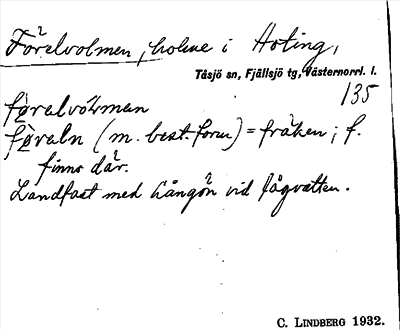 Förelvolmen, holme i Hoting,
Tåsjö sn, Fjällsjö tg, Västernorrl. l.
135
förelvòlmen
förəln (m. best. form) = fräken; f.
finns där.
Landfast med Långön vid lågvatten.
C. LINDBERG 1932.